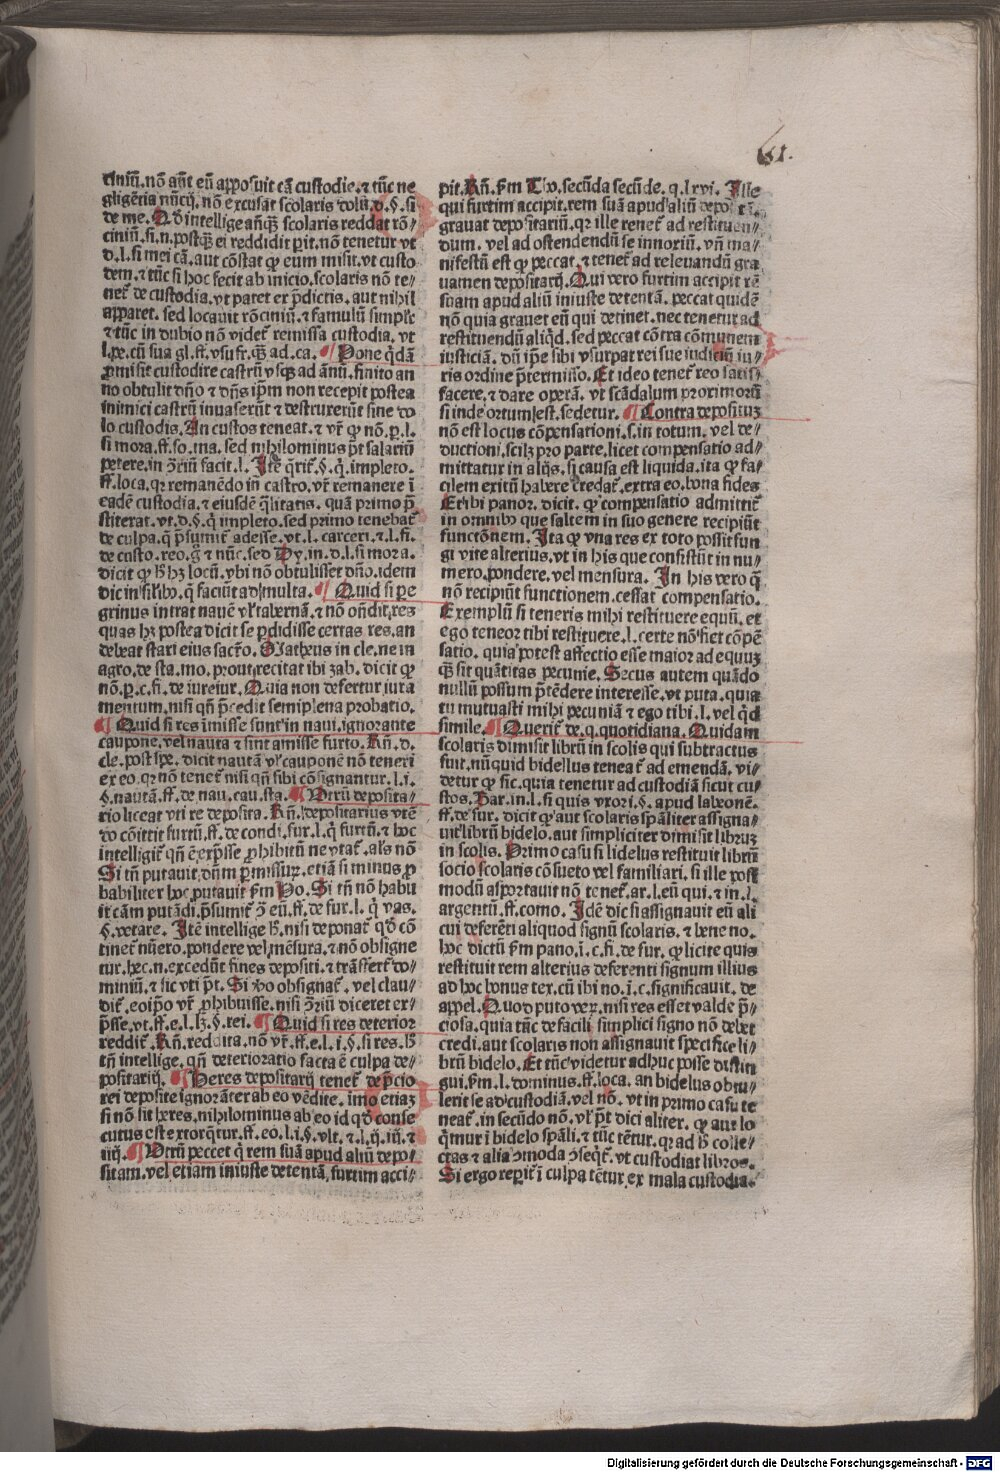 61.
cīniū. nō aūt eū apposuit cā custodie. ⁊ tūc ne
gligētia nūcij. nō excusat scolaris dolū. d. §. si
de me. Qd intellige añq̄ʒ scolaris reddat rō⸗
ciniū. si. n. postq̄ʒ ei reddidit perit. nō tenetur vt
d. l. si mei cā. aut cōstat ꝙ eum misit. vt custo
dem. ⁊ tūc si hoc fecit ab inicio. scolaris nō te⸗
net̄ de custodia. vt patet ex p̄dictis. aut nihil
apparet. sed locauit rōciniū. ⁊ famulū simplr̄
⁊ tūc in dubio nō videt̄ remissa custodia. vt
l. pe. cū sua gl. ff. vsufr. q̄ʒ ad. ca. ¶ Pone q̇dā
promisit custodire castrū vsqʒ ad annū. finito an
no obtulit dño ⁊ dñs ip̄m non recepit postea
inimici castrū inuaserūt ⁊ destruxerūt sine do
lo custodis. An custos teneat̄. ⁊ vr̄ ꝙ nō. p. l.
si mora. ff. so. ma. sed nihilominus pōt salariū
petere. in ꝯriū facit. l. Itē q̄rit̄. §. q̇. impleto.
ff. loca. qꝛ remanēdo in castro. vr̄ remanere ī
eadē custodia. ⁊ eiusdē q̄litatis. quā primo p̄
stiterat. vt. d. §. q̇ impleto. sed primo tenebat̄
de culpa. q̄ p̄sumit̄ adesse. vt. l. carceri. ⁊ l. fi.
de custo. reo. g̊ ⁊ nūc. sed Dy. in. d. l. si mora.
dicit ꝙ ꝉꝫ hʒ locū. vbi nō obtulisset dño. idem
dic in silibꝰ. q̄ faciūt ad multa. ¶ Quid si pe
grinus intrat nauē vꝉ tabernā. ⁊ nō oñdit. res
quas hʒ postea dicit se perdidisse certas res. an
debeat stari eius sacr̄o. Matheus in cle. ne in
agro. de sta. mo. prout recitat ibi zab. dicit ꝙ
nō. p. c. fi. de iureiur. Quia non defertur iura
mentum. nisi qñ p̄cedit semiplena probatio.
¶ Quid si res īmisse sunt in naui. ignorante
caupone. vel nauta ⁊ sint amisse furto. Rñ. d.
cle. post spe. dicit nautā vꝉ cauponē nō teneri
ex eo. qꝛ nō tenet̄ nisi qñ sibi cōsignantur. l. i.
§. nautā. ff. de nau. cau. sta. ¶ Vtrū deposita⸗
rio liceat vti re deposita. Rñ. depositarius vtē
do cōittit furtū. ff. de condi. fur. l. q̇ furtū. ⁊ hoc
intelligit̄ qñ ē exp̄sse prohibitū ne vtat̄. als nō
Si tñ putauit. dñm permissuꝝ. etiā si minus pro
babiliter hoc putauit scḋm Ho. Si tñ nō habu
it cām putādi. p̄sumit̄ ꝯ eū. ff. de fur. l. q̇ vas.
§. vetare. Itē intellige ꝉꝫ. nisi deponat̄ qd̄ cō
tinet̄ nūero. pondere vel mēsura. ⁊ nō obsigne
tur. hec. n. excedūt fines depositi. ⁊ trāsfert̄ do⸗
miniū. ⁊ sic vti pōt. Si vo obsignat̄. vel clau⸗
dit̄. eoipo vr̄ prohibuisse. nisi ꝯriū diceret ex⸗
p̄sse. vt. ff. e. l. lʒ. §. rei. ¶ Quid si res deterior
reddit̄. Rñ. reddita. nō vr̄. ff. e. l. i. §. si res. ꝉꝫ
tñ intellige. qñ deterioratio facta ē culpa de⸗
positarij. ¶ Heres depositarij tenet̄ de p̄cio
rei deposite ignorāter ab eo vēdite. imo etiaʒ
si nō sit heres. nihilominus ab eo id qd̄ conse
cutus est extorq̄tur. ff. eo. l. i. §. vlt. ⁊ l. ij. iij. ⁊
iiij. ¶ Vtrū peccet q̇ rem suā apud aliū depo⸗
sitam. vel etiam iniuste detentā. furtim acci⸗
pit. Rñ. scḋm Tho. secūda secūde. q. lxvi. Ille
qui furtim accipit. rem suā apud aliū depositā.
grauat depositariū. qꝛ ille tenet̄ ad restituen⸗
dum. vel ad ostendendū se innoxiū. vñ ma⸗
nifestū est ꝙ peccat. ⁊ tenet̄ ad releuandū gra
uamen depositarij. Qui vero furtim accipit rē
suam apud aliū iniuste detentā. peccat quidē
nō quia grauet eū qui detinet. nec tenetur ad
restituendū aliq̇d. sed peccat cōtra cōmunem
iusticiā. dū ip̄e sibi vsurpat rei sue iudiciū iu⸗
ris ordine p̄termisso. Et ideo tenet̄ reo satis⸗
facere. ⁊ dare operā. vt scādalum proximorū
si inde ortum est. sedetur. ¶ Contra depositūʒ
nō est locus cōpensationi. s. in totum. vel de⸗
ductioni. scilʒ pro parte. licet compensatio ad⸗
mittatur in alijs. si causa est liquida. ita ꝙ fa⸗
cilem exitū habere credat̄. extra eo. bona fides
Et ibi panor. dicit. ꝙ compensatio admittit̄
in omnibꝰ que saltem in suo genere recipiūt
functōnem. Ita ꝙ vna res ex toto possit fun
gi vite alterius. vt in his que consistūt in nu⸗
mero. pondere. vel mensura. In his vero q̄
nō recipiūt functionem. cessat compensatio.
Exemplū si teneris mihi restituere equū. et
ego teneor tibi restituere. l. certe nō fiet cōpē
satio. quia potest affectio esse maior ad equūʒ
q̄ʒ sit quātitas pecunie. Secus autem quādo
nullū possum p̄tēdere interesse. vt puta. quia
tu mutuasti mihi pecuniā ⁊ ego tibi. l. vel q̇d
simile. ¶ Querit̄ de. q. quotidiana. Quidam
scolaris dimisit librū in scolis qui subtractus
fuit. nūquid bidellus teneat̄ ad emendā. vi⸗
detur ꝙ sic. quia tenetur ad custodiā sicut cu⸗
stos. Bar. in. l. si quis vxori. §. apud labeonē.
ff. de fur. dicit ꝙ aut scolaris sp̄aliter assigna⸗
uit librū bidelo. aut simpliciter dimisit libruʒ
in scolis. Primo casu si bidelus restituit librū
socio scolaris cōsueto vel familiari. si ille post
modū asportauit nō tenet̄. ar. l. eū qui. ⁊ in. l.
argentū. ff. como. Idē dic si assignauit eū ali
cui deferēti aliquod signū scolaris. ⁊ bene no.
hoc dictū scḋm pano. ī. c. fi. de fur. ꝙ licite quis
restituit rem alterius deferenti signum illius
ad hoc bonus tex. cū ibi no. ī. c. significauit. de
appel. Quod puto veꝝ. nisi res esset valde p̄⸗
ciosa. quia tūc de facili simplici signo nō debet
credi. aut scolaris non assignauit specifice li⸗
brū bidelo. Et tūc videtur adhuc posse distin
gui. scḋm. l. dominus. ff. loca. an bidelus obtu⸗
lerit se ad custodiā. vel nō. vt in primo casu te
neat̄. in secūdo nō. vꝉ pōt dici aliter. ꝙ aut lo
q̇mur ī bidelo sp̄ali. ⁊ tūc tētur. qꝛ ad ꝉꝫ colle⸗
ctas ⁊ alia ꝯmoda ꝯseqt̄. vt custodiat libros.
Si ergo reperit̄ ī culpa tētur. ex mala custodia.
Digitalisierung gefördert durch die Deutsche Forschungsgemeinschaft - DFG